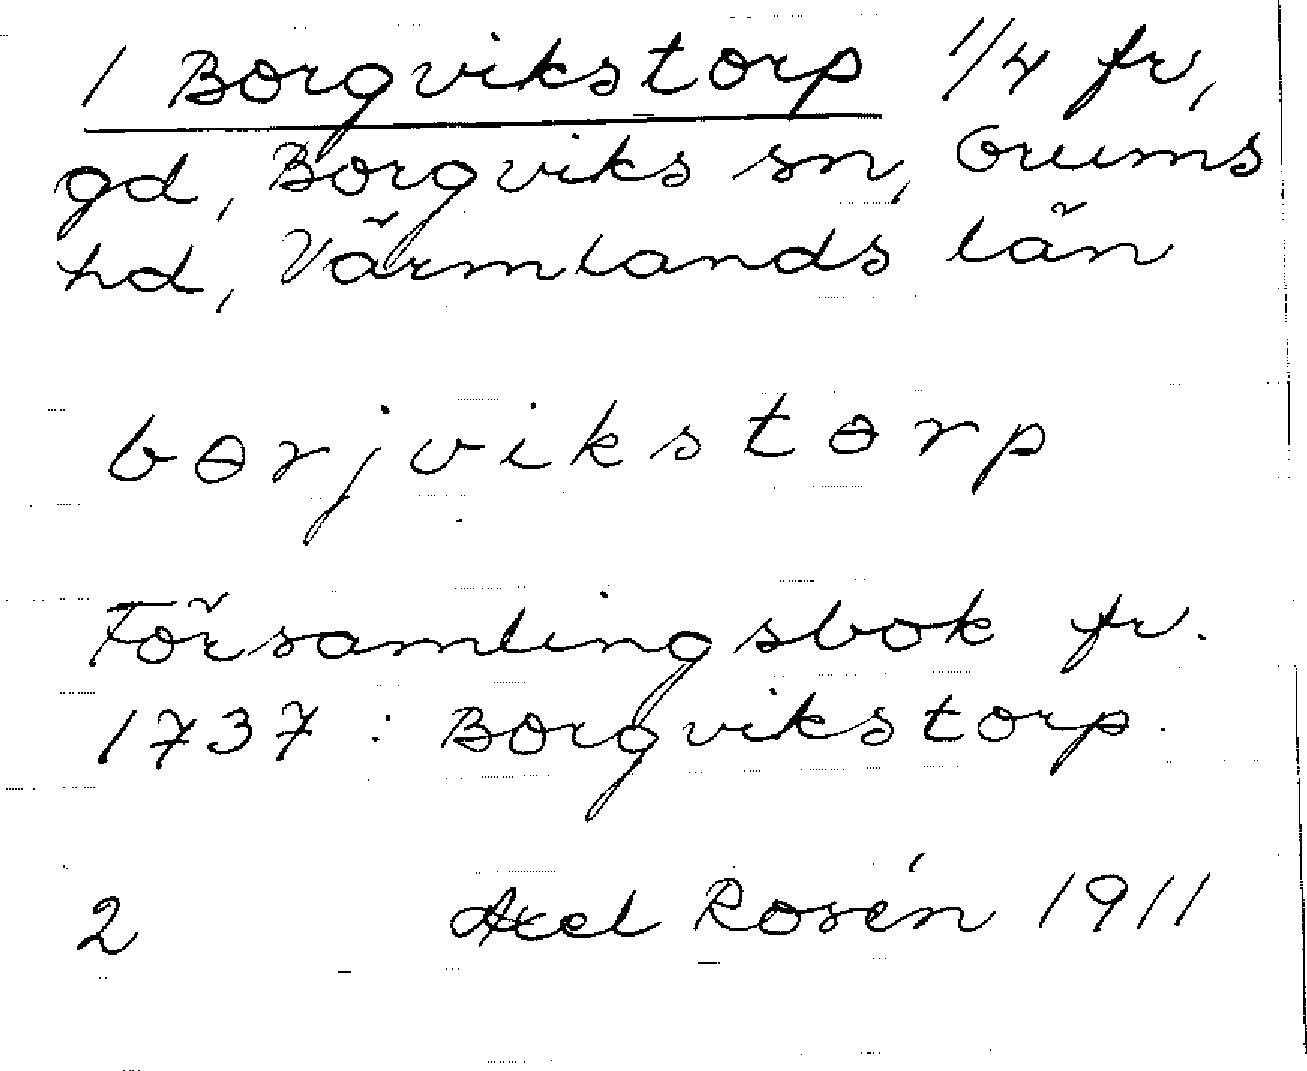 1 Borgvikstorp 1/4 fr,
gd, Borgviks sn, Grums
hd, Värmlands län
bɵrjvikstɵrp
Församlingsbok fr.
1737 : Borgvikstorp.
2 Axel Rosén 1911